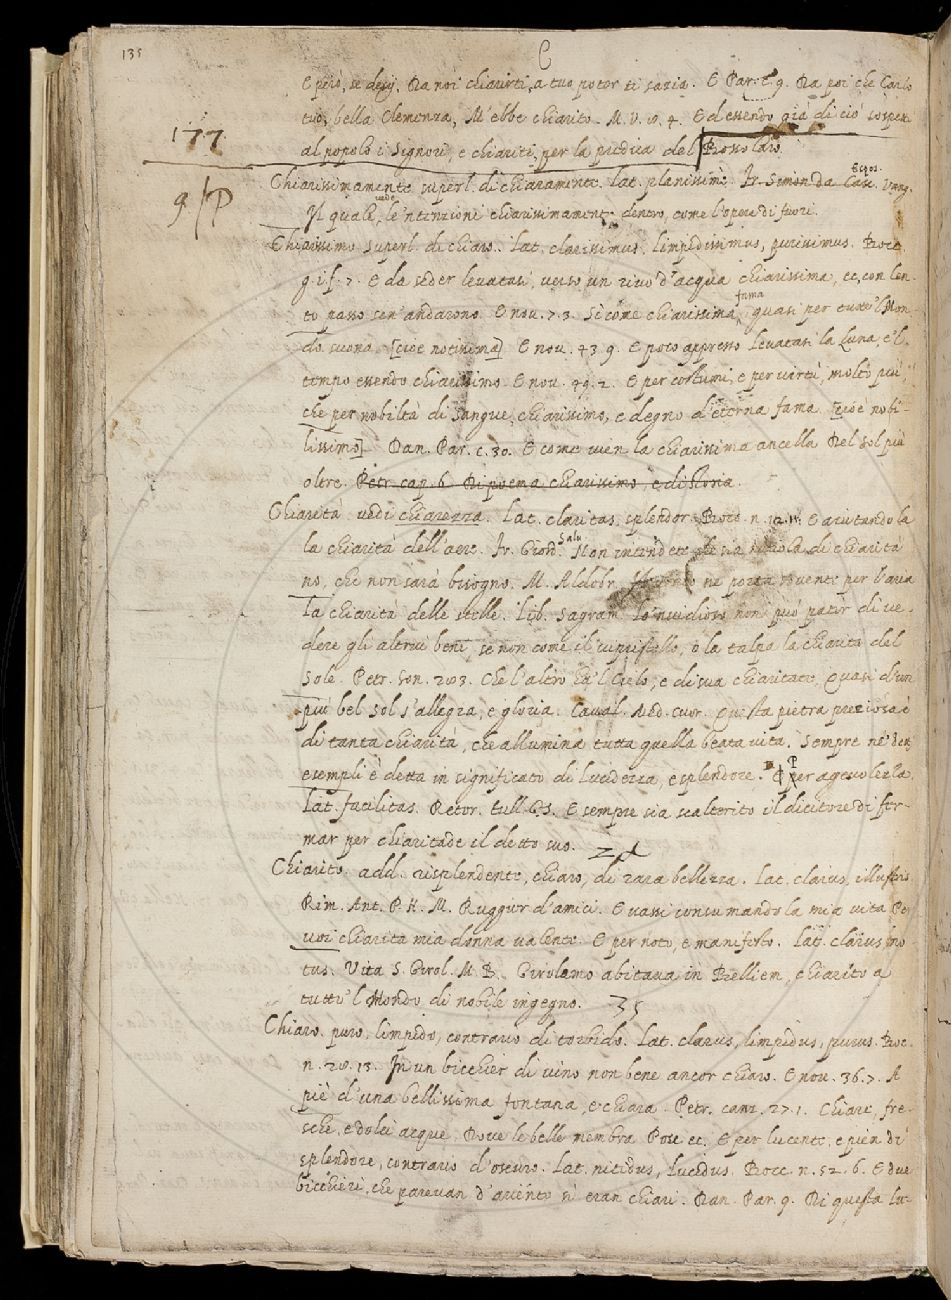 135
C
E però, se desij, Da noi chiarirti, a tuo poter ti sazia. E Par. C. 9. Da poi che Carlo
tuo, bella Clemenza, M'ebbe chiarito. M. V. 10. 4. Ed essendo già di ciò sospesi
177
al popolo i Signori, e chiariti, per la pruova del Rosso laio.
9 P
Chiarissimamente superl. di chiaramente. Lat. planissimè. Fr. Simon da Casc. Espos. Vang.
Il quale vede le 'ntenzioni chiarissimamente dentro, come l'opere di fuori.
Chiarissimo superl. di chiaro. Lat. clarissimus, limpidissimus, purissimus. Bocc.
g. i. f. 7. E da seder levatasi, verso un rivo d'acqua chiarissima, ec, con len-
to passo sen'andarono. E nov. 7. 3. Si come chiarissima fama quasi per tutto 'l Mon-
do suona. [cioè notissima] E nov. 43. 9. E poco appresso levatasi la Luna, e 'l
tempo essendo chiarissimo. E nov. 49. 2. E per costumi, e per virtù, molto più,
che per nobiltà di sangue, chiarissimo, e degno d'eterna fama [cioè nobi-
lissimo] Dan. Par. c. 30. E come vien la chiarissima ancella Del sol più
oltre. Petr. cap. 6. Di poema chiarissimo, e di storia.
Chiarità vedi chiarezza. Lat. claritas, splendor. Bocc. n. 12. 11. E aiutando la
la chiarità dell'aere. Fr. Giord. Salu. Non intendete di chiarità
no, che non sarà bisogno. M. Aldobr. ne porta sovente per l'aria
la chiarità delle stelle. Lib. Sagram. Lo 'nvidioso non può patir di ve-
dere gli altrui beni, se non come il vipistrello, o la talpa la chiarità del
Sole. Petr. son. 203. Che l'altro ha 'l Cielo, e di sua chiaritate, Quasi d'un
più bel Sol s'allegra, e gloria. Caval. Med. cuor. Questa pietra preziosa è
di tanta chiarità, che allumina tutta quella beata vita. Sempre ne' detti
esempli è detta in significato di lucidezza, e splendore. P per agevolezza.
Lat. facilitas. Retor. Tull. G. S. E sempre sia scalterito il dicitore di for-
mar per chiaritade il detto suo.
Chiarito. add. risplendente, chiaro, di rara bellezza. Lat. clarus, illustris
Rim. Ant. P. N. M. Ruggier d'amici. E vassi consumando la mia vita Per
voi chiarita mia donna valente. E per noto, e manifesto. Lat. clarus, no-
tus. Vita S. Girol. M. B. Girolamo abitava in Belliem, chiarito a
tutto 'l Mondo di nobile ingegno. 35
Chiaro. puro, limpido, contrario di torbido. Lat. clarus, limpidus, purus. Boc.
n. 20. 13. In un bicchier di vino non bene ancor chiaro. E nov. 36. 7. A
piè d'una bellissima fontana, e chiara. Petr. canz. 27. 1. Chiare, fre-
sche, e dolci acque, Dove le belle membra Pose ec. E per lucente, e pien di
splendore, contrario d'oscuro. Lat. nitidus, lucidus. Bocc. n. 52. 6. E due
bicchieri, che parevan d'ariento sì eran chiari. Dan. Par. 9. Di questa lu-